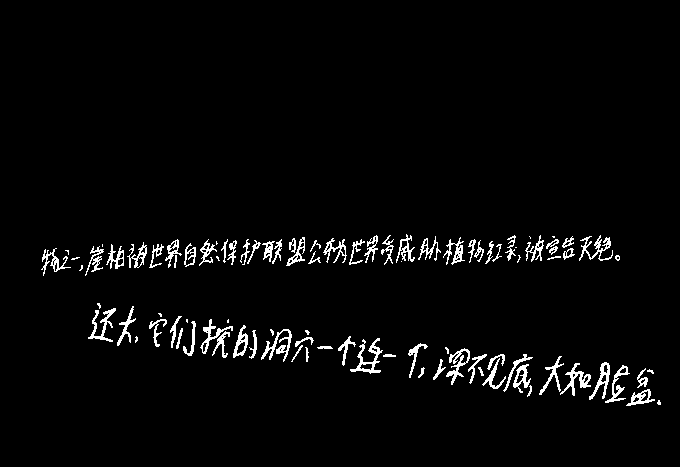 物之一,崖柏被世界自然保护联盟公布为世界受威胁植物红录,被宣告灭绝。
还大,它们挖的洞穴一个连一个,深不见底,大和脸盆、